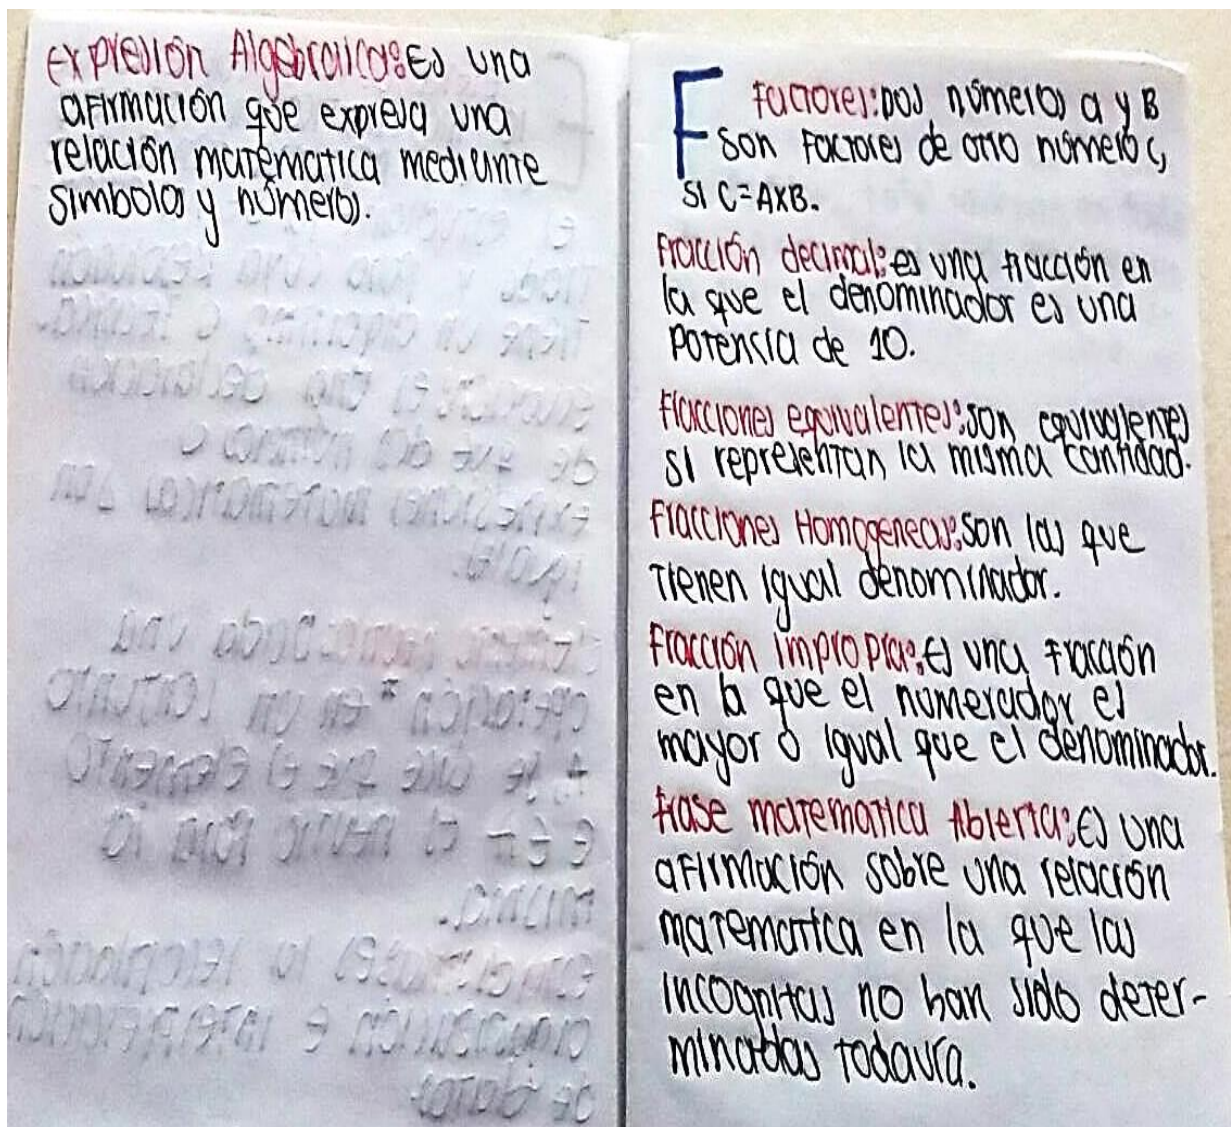 Expresión Algebraica: Es una
afirmación que expresa una
relación matématica mediante
simbolos y números.
F
Factores: Dos números a y B
son Factores de otro número c,
si C=AXB.
Fracción decimal: es una fracción en
la que el denominador es una
Potencia de 10.
Fracciones equivalentes: son equivalentes
si representan la misma cantidad.
Fracciones Homogeneas: son las que
Tienen igual denominador.
Fracción impropia: es una fracción
en la que el numerador es
mayor o igual que el denominador.
Frase matematica Abierta: es una
afirmación sobre una relación
matematica en la que las
incognitas no han sido deter-
minadas todavía.